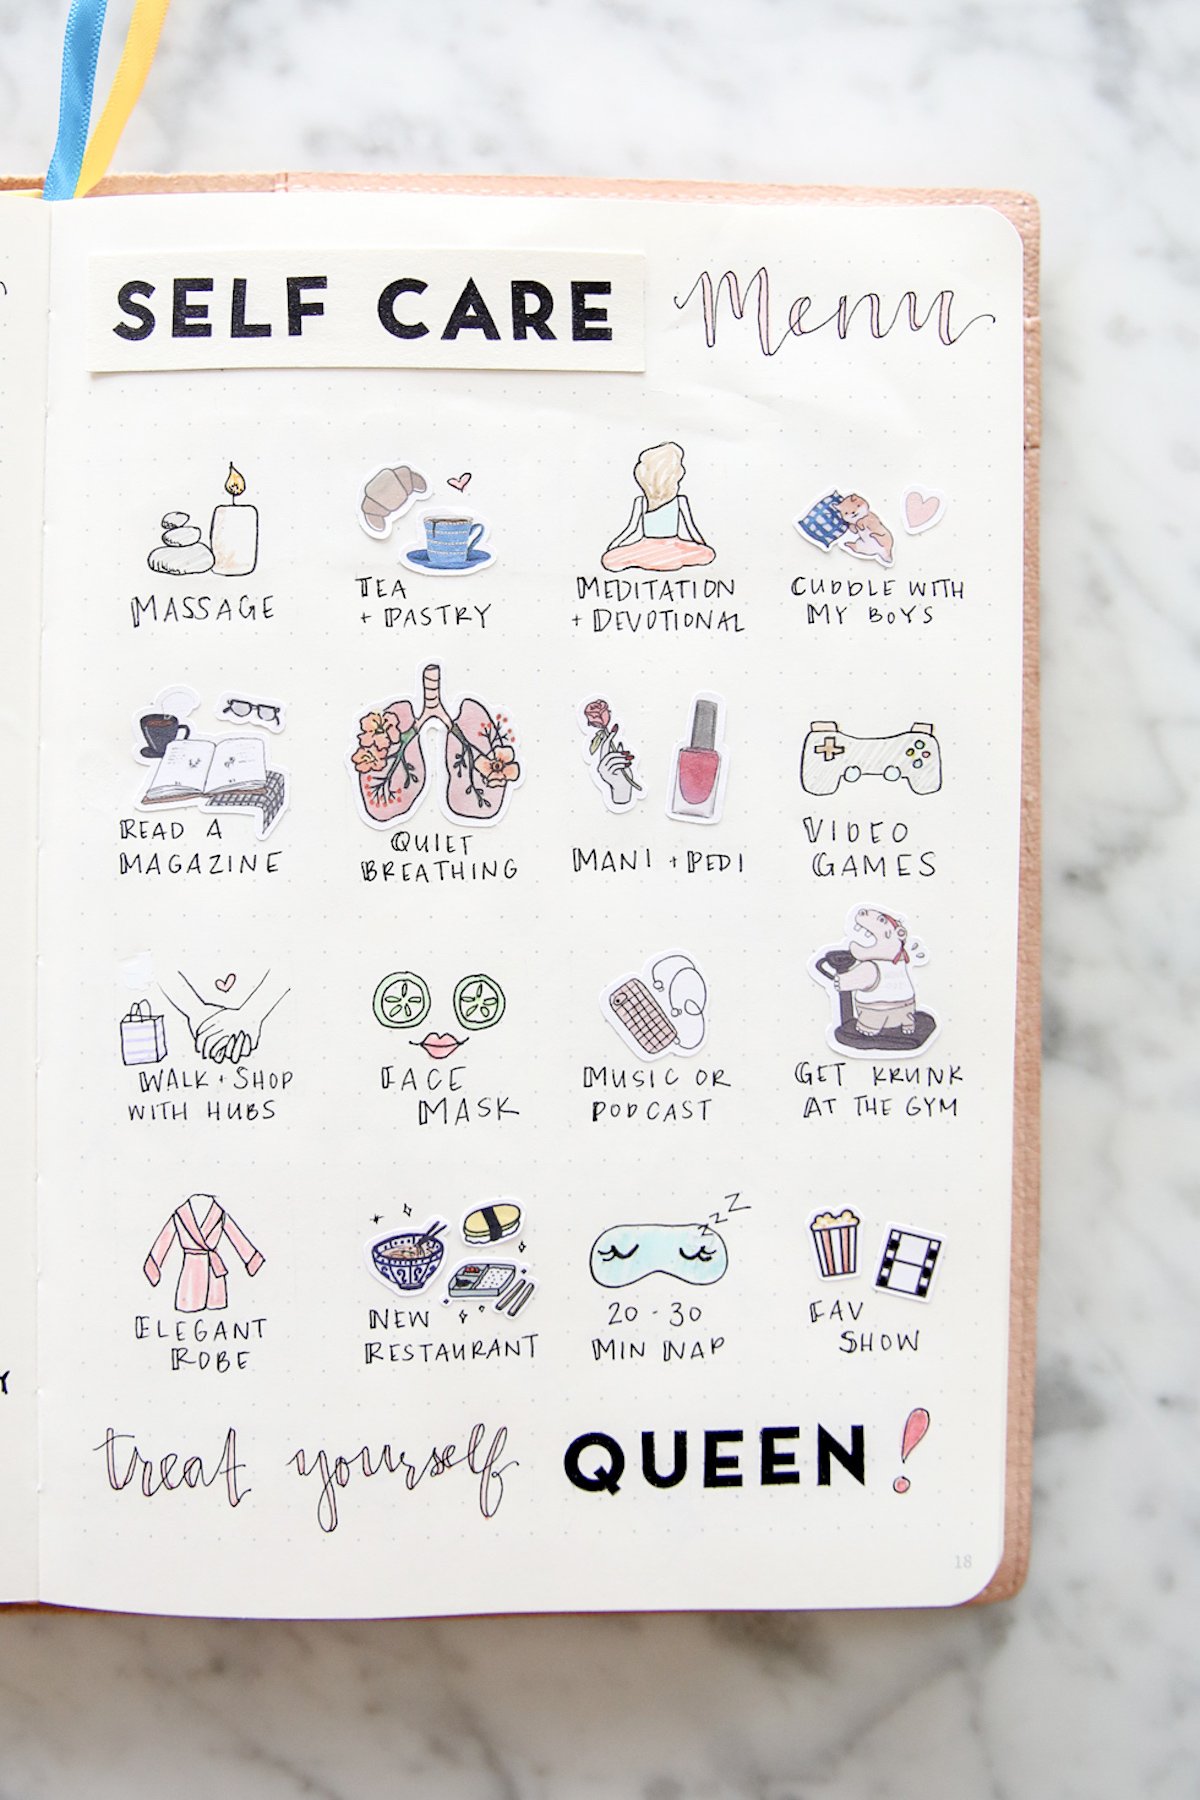 SELF CARE Menu
MASSAGE
TEA
+ PASTRY
MEDITATION
+ DEVOTIONAL
CUDDLE WITH
MY BOYS
READ A
MAGAZINE
QUIET
BREATHING
MANI + PEDI
VIDEO
GAMES
WALK + SHOP
WITH HUBS
FACE
MASK
MUSIC OR
PODCAST
GET KRUNK
AT THE GYM
ELEGANT
ROBE
NEW
RESTAURANT
zzz
20-30
MIN NAP
FAV
SHOW
treat yourself QUEEN!
18